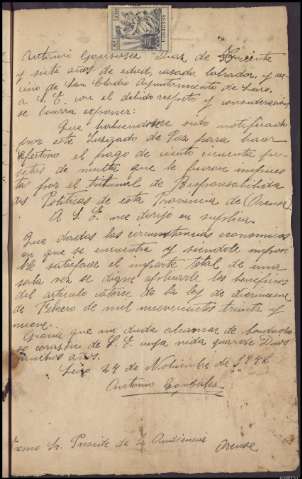 Antonio Gonzalez Diaz de treinta
y siete años de edad, casado labrador, y ve
cino de San Clodio Ayuntamiento de Leiro
a S. E. con el debido respeto y consideración
se honra exponer:
Que habiendose sido notificado
por este Juzgado de Paz para hacer
efectivo el pago de ciento cincuenta pe
setas de multa que le fueron impuestas
por el tribunal de Responsabilida
des Politicas de esta Provincia de Orense
A S. E. me dirijo en suplica
Que dadas las circunstancias economicas
en que se encuentra y siendole imposi
ble satisfacer el importe total de una
sola vez se digne aplicarle los beneficios
del articulo catorce de la ley de diecinueve
de Febrero de mil novecientos treinta y
nueve.
Gracia que no duda alcanzar de bondadoso
corazón de S. E. cuya vida guarde Dios
muchos años.
Leiro 24 de Nobiembre de
Antonio Gonzalez
Exmo Sr. Presidente de la Audiencia Orense